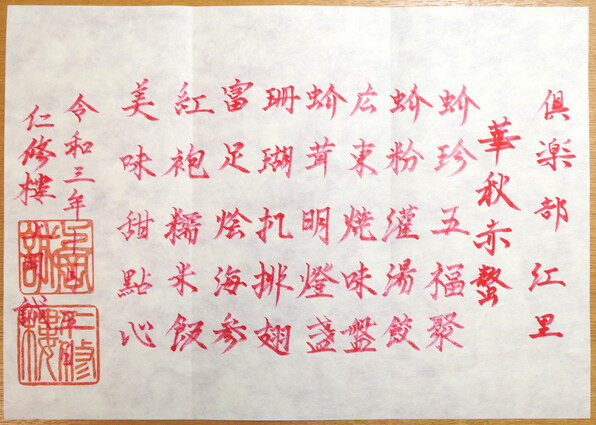 俱楽部 紅里
華秋赤螯
蚧珍五福聚
蚧粉灌湯餃
広東焼味盤
蚧茸明燈盞
珊瑚扎排翅
富足烩海参
紅袍糯米飯
美味甜點心
令和三年
仁修樓 誠